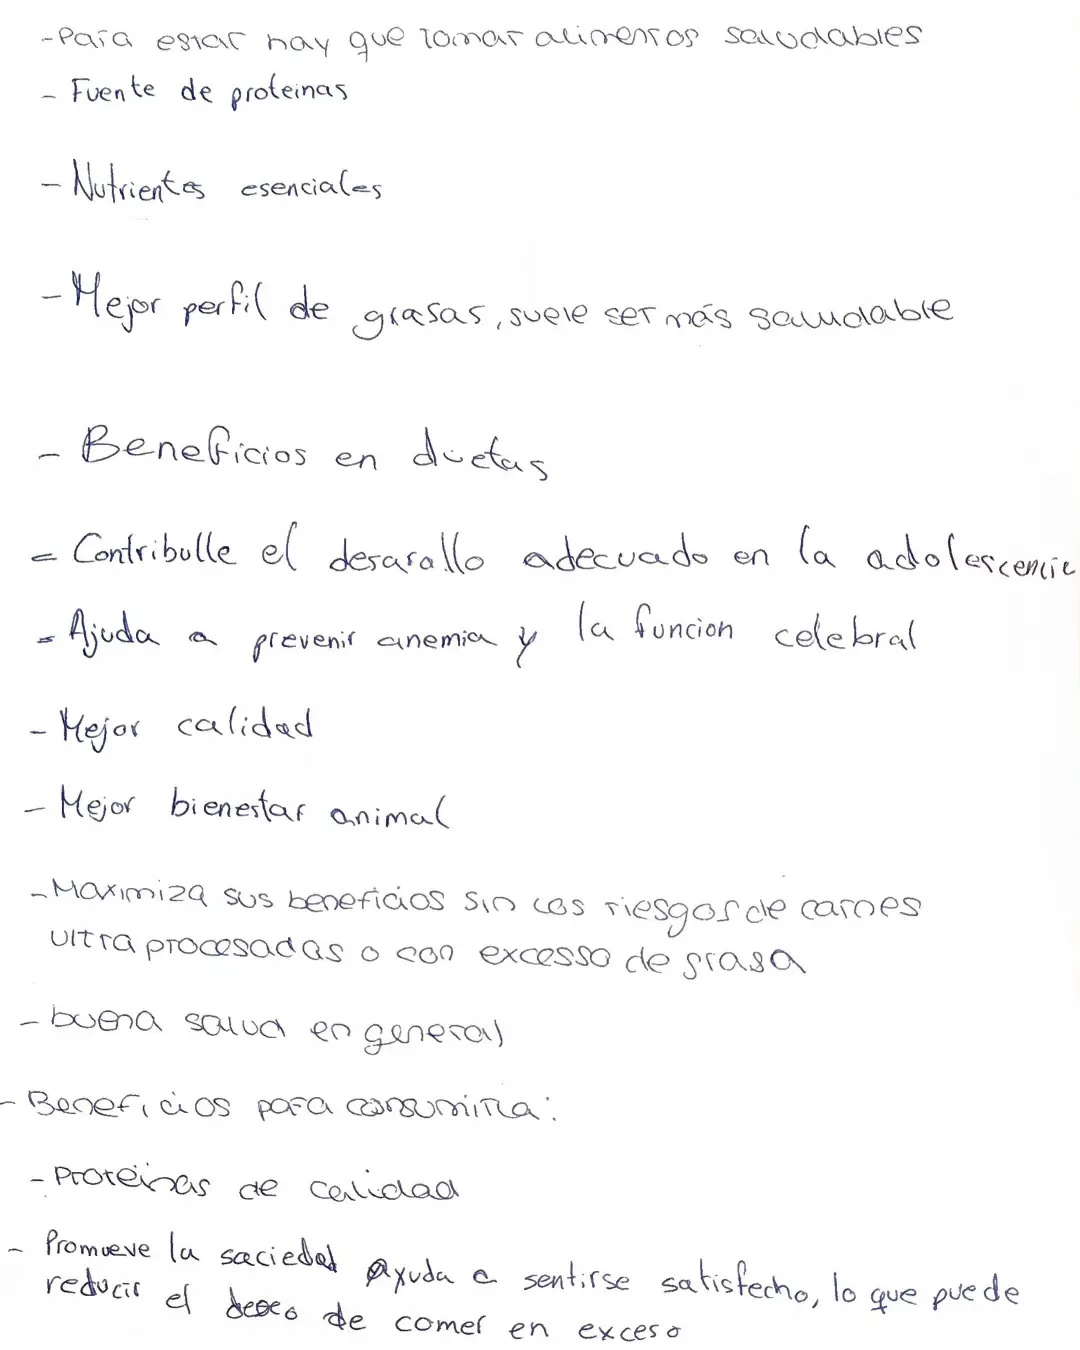 -Para estar hay que tomar alimentos saludables
- Fuente de proteinas
- Nutrientes esenciales
- Mejor perfil de grasas, suele ser más saludable
- Beneficios en dietas
- Contribulle el desarallo adecuado en la adolescencic
- Ajuda a prevenir anemia y la funcion celebral
- Mejor calidad
- Mejor bienestar animal
- Maximiza sus beneficios sin los riesgos de carnes
ultra procesadas o con excesso de grasa
- buena salud en general
- Beneficios para consumirla:
- Proteinas de calidad
- Promueve la saciedad Ayuda a sentirse satisfecho, lo que puede
reducir el deseo de comer en exceso